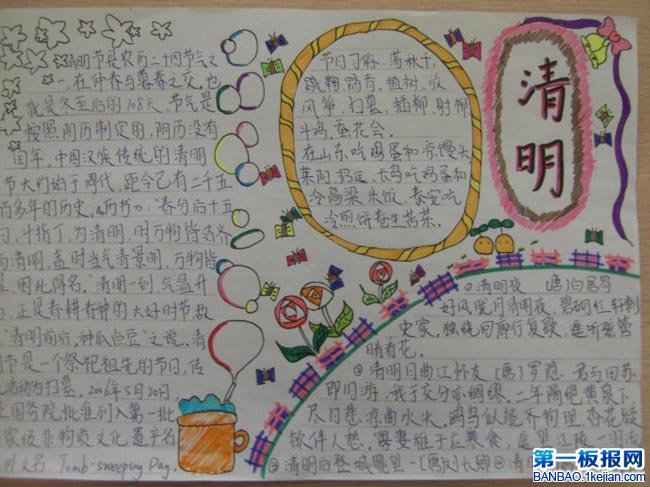 清明节是农历二十四节气之
一,在仲春与暮春之交,也
就是冬至后的108天。节气是
按照阴历制定的,阴历没有
闰年。中国汉族传统的清明
节大约始于周代,距今已有二千五
百多年的历史。《历书》:"春分后十五
日,斗指丁,为清明,时万物皆洁齐
而清明,盖时当气清景明,万物皆
显,因此得名。"清明一到,气温升
正是春耕春种的大好时节,故
"清明前后,种瓜点豆"之说。清
明节是一个祭祀祖先的节日,传
活动为扫墓。2006年5月20日
国务院批准列入第一批
家级非物质文化遗产名
外文名 Tomb-sweeping Day.
节日习俗:荡秋千,
蹴鞠,踏青,植树,放
风筝,扫墓,插柳,射柳
斗鸡,蚕花会。
在山东,吃鸡蛋和凉馒头
莱阳,招远,长岛吃鸡蛋和
冷高粱米饭,泰安吃
冷煎饼卷生苦菜。
清明
清明夜 (唐)白居易
好风胧月清明夜,碧砌红轩刺
史家。独绕回廊行复歇,遥听弦管
暗看花。
清明日曲江怀友 (唐)罗隐 君与田苏
即旧游,我于交分亦绸缪。二年隔绝黄泉下
尽日悲凉曲水头。鸥鸟似能齐物理,杏花疑
欲伴人愁。寡妻稚子应寒食,遥望江陵一泪流
清明后登城眺望 (唐)刘长卿 清明
第一板报网
BANBAO.1kejian.com